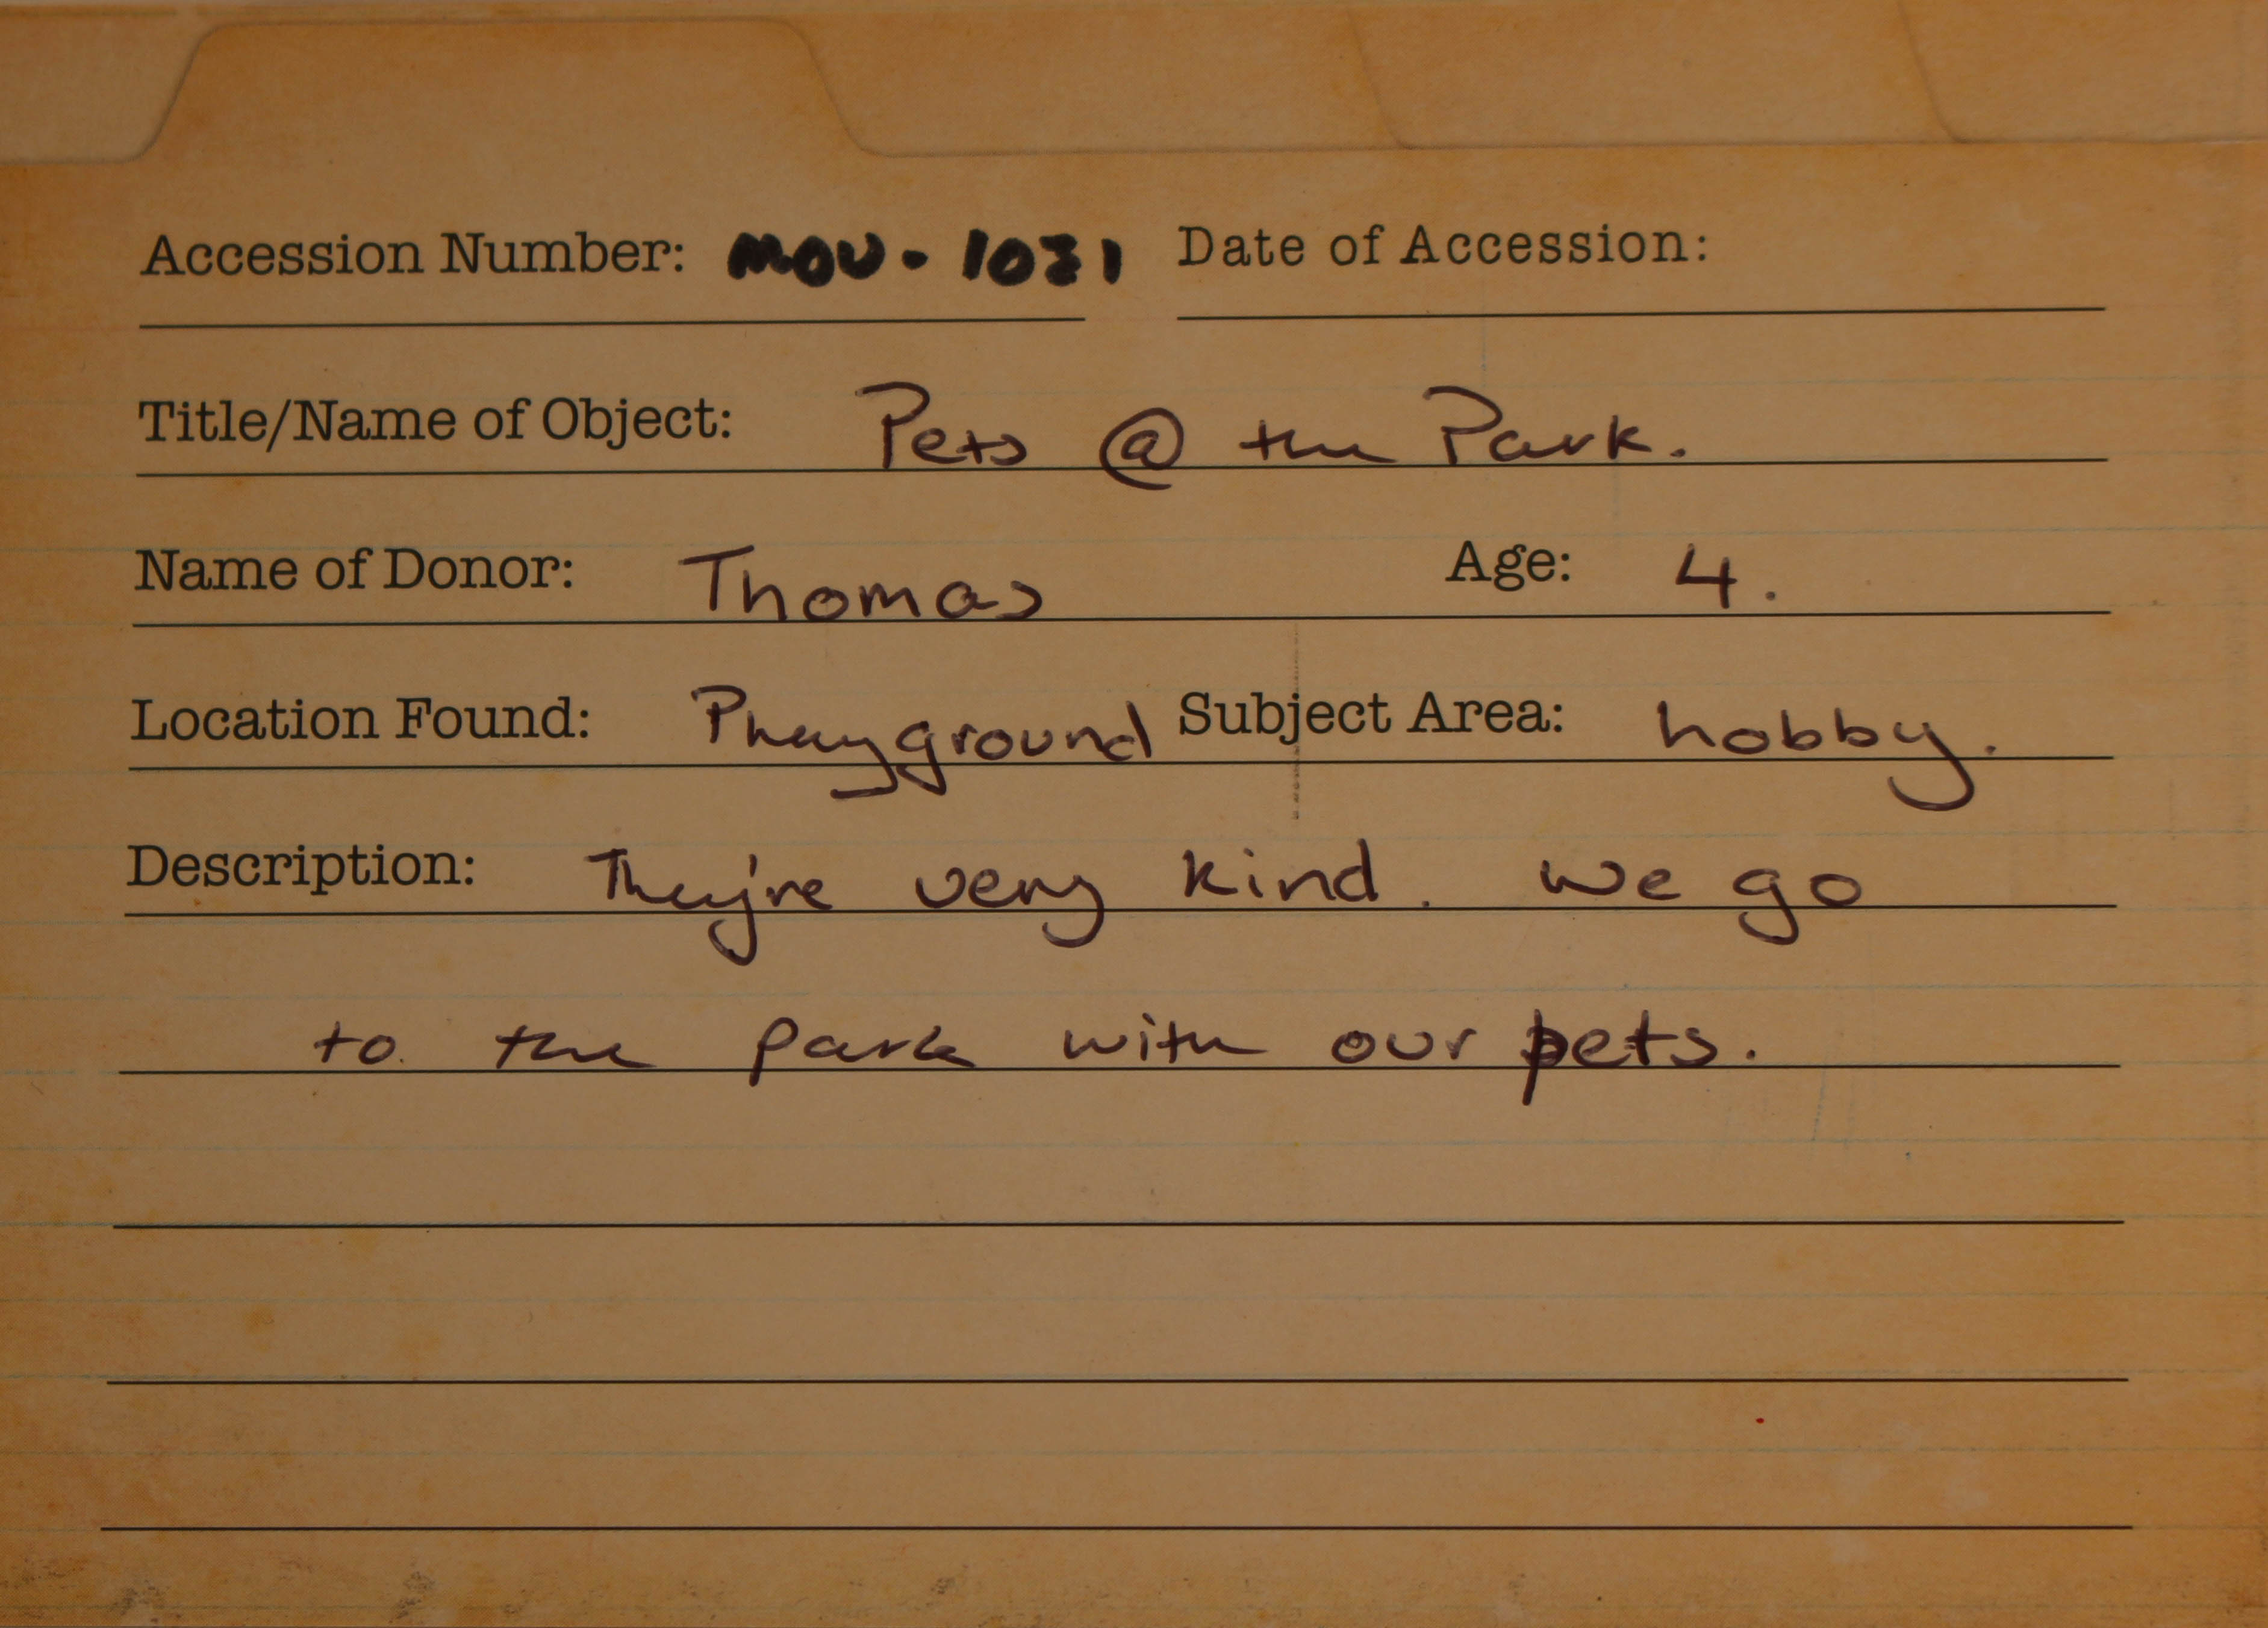 Accession Number: MOU-1031 Date of Accession:
Title/Name of Object: Pets @ the Park.
Name of Donor: Thomas Age: 4.
Location Found: Playground Subject Area: hobby.
Description: They're very kind. We go
to the park with our pets.